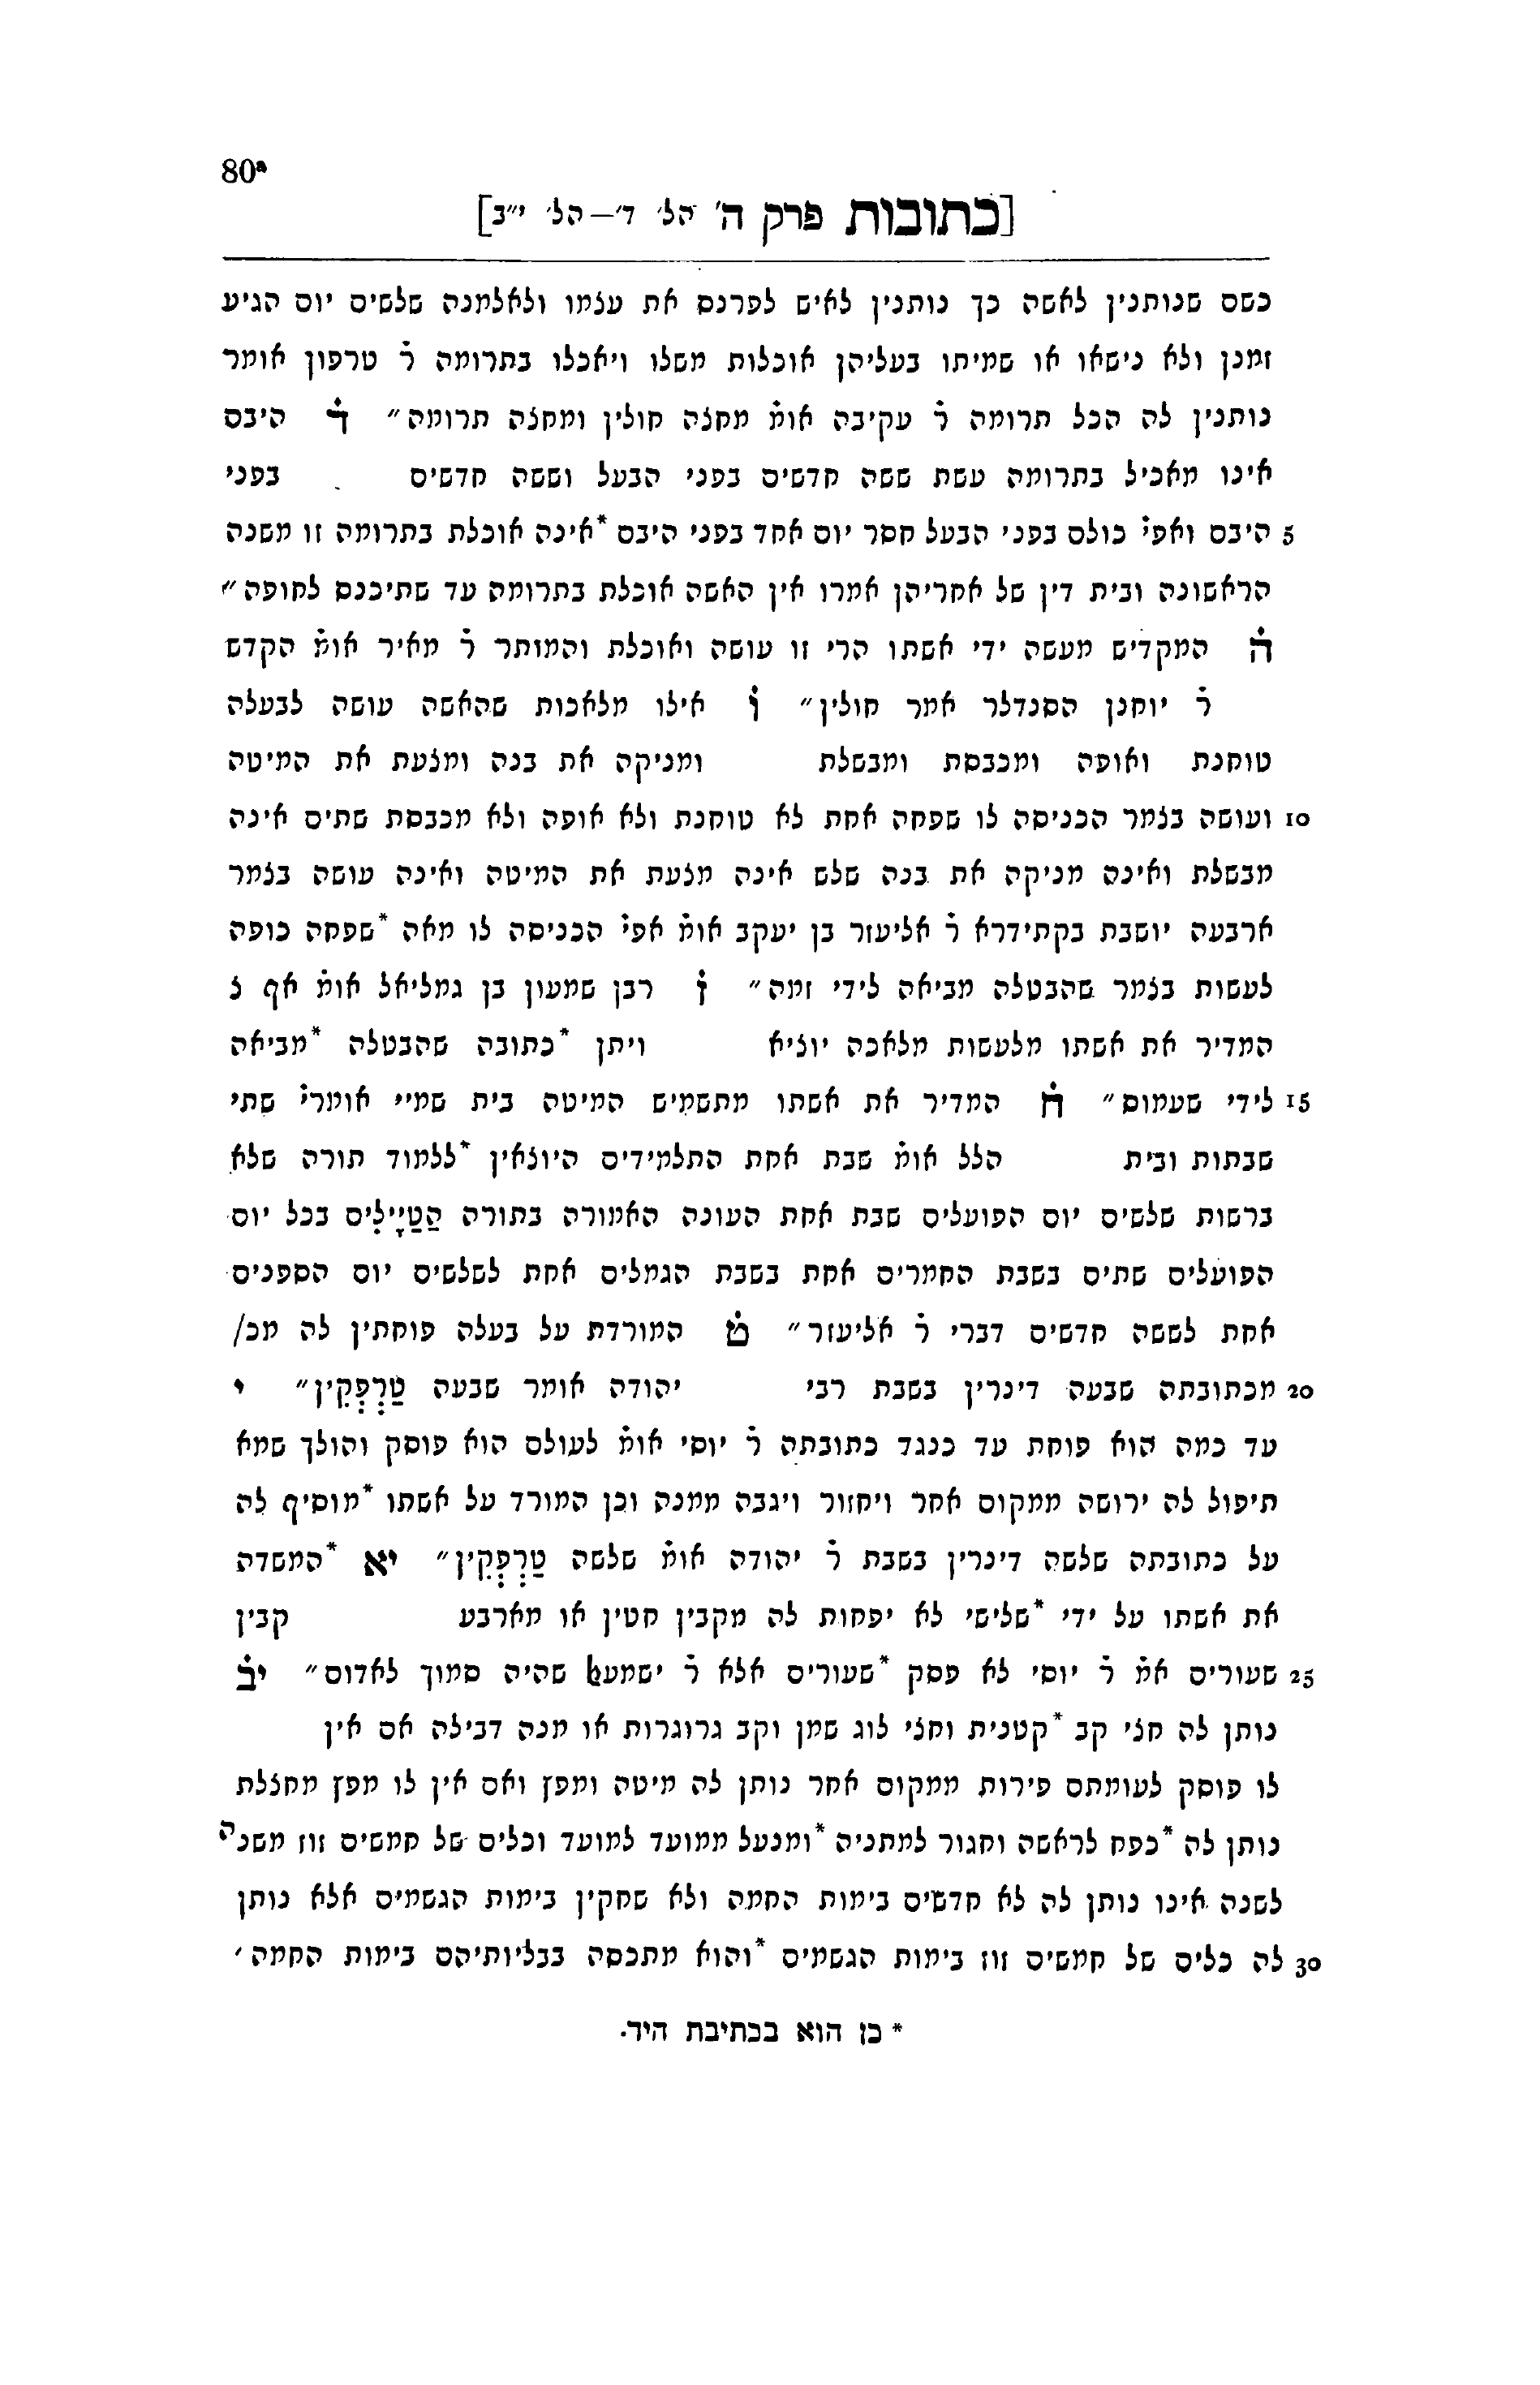 80ª
[כתובות פרק ה' הל' ד'–הל' י"ב]
כשם שנותנין לאשה כך נותנין לאיש לפרנס את עצמו ולאלמנה שלשים יום הגיע
זמנן ולא נישאו או שמיתו בעליהן אוכלות משלו ויאכלו בתרומה ר̇ טרפון אומר
נותנין לה הכל תרומה ר̇ עקיבה אומ̇ מחצה חולין ומחצה תרומה″ ד̇ היבם
אינו מאכיל בתרומה עשת ששה חדשים בפני הבעל וששה חדשים בפני
5 היבם ואפי̇ כולם בפני הבעל חסר יום אחד בפני היבם *אינה אוכלת בתרומה זו משנה
הראשונה ובית דין של אחריהן אמרו אין האשה אוכלת בתרומה עד שתיכנס לחופה″
ה̇ המקדיש מעשה ידי אשתו הרי זו עושה ואוכלת והמותר ר̇ מאיר אומ̇ הקדש
ר̇ יוחנן הסנדלר אמר חולין″ ו̇ אילו מלאכות שהאשה עושה לבעלה
טוחנת ואופה ומכבסת ומבשלת ומניקה את בנה ומצעת את המיטה
10 ועושה בצמר הכניסה לו שפחה אחת לא טוחנת ולא אופה ולא מכבסת שתים אינה
מבשלת ואינה מניקה את בנה שלש אינה מצעת את המיטה ואינה עושה בצמר
ארבעה יושבת בקתידרא ר̇ אליעזר בן יעקב אומ̇ אפי̇ הכניסה לו מאה *שפחה כופה
לעשות בצמר שהבטלה מביאה לידי זמה″ ז̇ רבן שמעון בן גמליאל אומ̇ אף צ
המדיר את אשתו מלעשות מלאכה יוציא ויתן *כתובה שהבטלה *מביאה
15 לידי שעמום″ ח̇ המדיר את אשתו מתשמיש המיטה בית שמיי אומרי̇ שתי
שבתות ובית הלל אומ̇ שבת אחת התלמידים היוצאין *ללמוד תורה שלא
ברשות שלשים יום הפועלים שבת אחת העונה האמורה בתורה הַטַיָילִים בכל יום
הפועלים שתים בשבת החמרים אחת בשבת הגמלים אחת לשלשים יום הספנים
אחת לששה חדשים דברי ר̇ אליעזר″ ט̇ המורדת על בעלה פוחתין לה מכ/
20 מכתובתה שבעה דינרין בשבת רבי יהודה אומר שבעה טַרְפְּקִין″ י
עד כמה הוא פוחת עד כנגד כתובתה ר̇ יוסי אומ̇ לעולם הוא פוסק והולך שמא
תיפול לה ירושה ממקום אחר ויחזור ויגבה ממנה וכן המורד על אשתו *מוסיף לה
על כתובתה שלשה דינרין בשבת ר̇ יהודה אומ̇ שלשה טַרְפְּקִין″ יא *המשדה
את אשתו על ידי *שלישי לא יפחות לה מקבין חטין או מארבע קבין
25 שעורים אמ̇ ר̇ יוסי לא פסק *שעורים אלא ר̇ ישמעאל שהיה סמוך לאדום″ יב̇
נותן לה חצי קב *קטנית וחצי לוג שמן וקב גרוגרות או מנה דבילה אם אין
לו פוסק לעומתם פירות ממקום אחר נותן לה מיטה ומפץ ואם אין לו מפץ מחצלת
נותן לה *כפח לראשה וחגור למתניה *ומנעל ממועד למועד וכלים של חמשים זוז משנה
לשנה אינו נותן לה לא חדשים בימות החמה ולא שחקין בימות הגשמים אלא נותן
30 לה כלים של חמשים זוז בימות הגשמים *והוא מתכסה בבליותיהם בימות החמה′
* כן הוא בכתיבת היד.